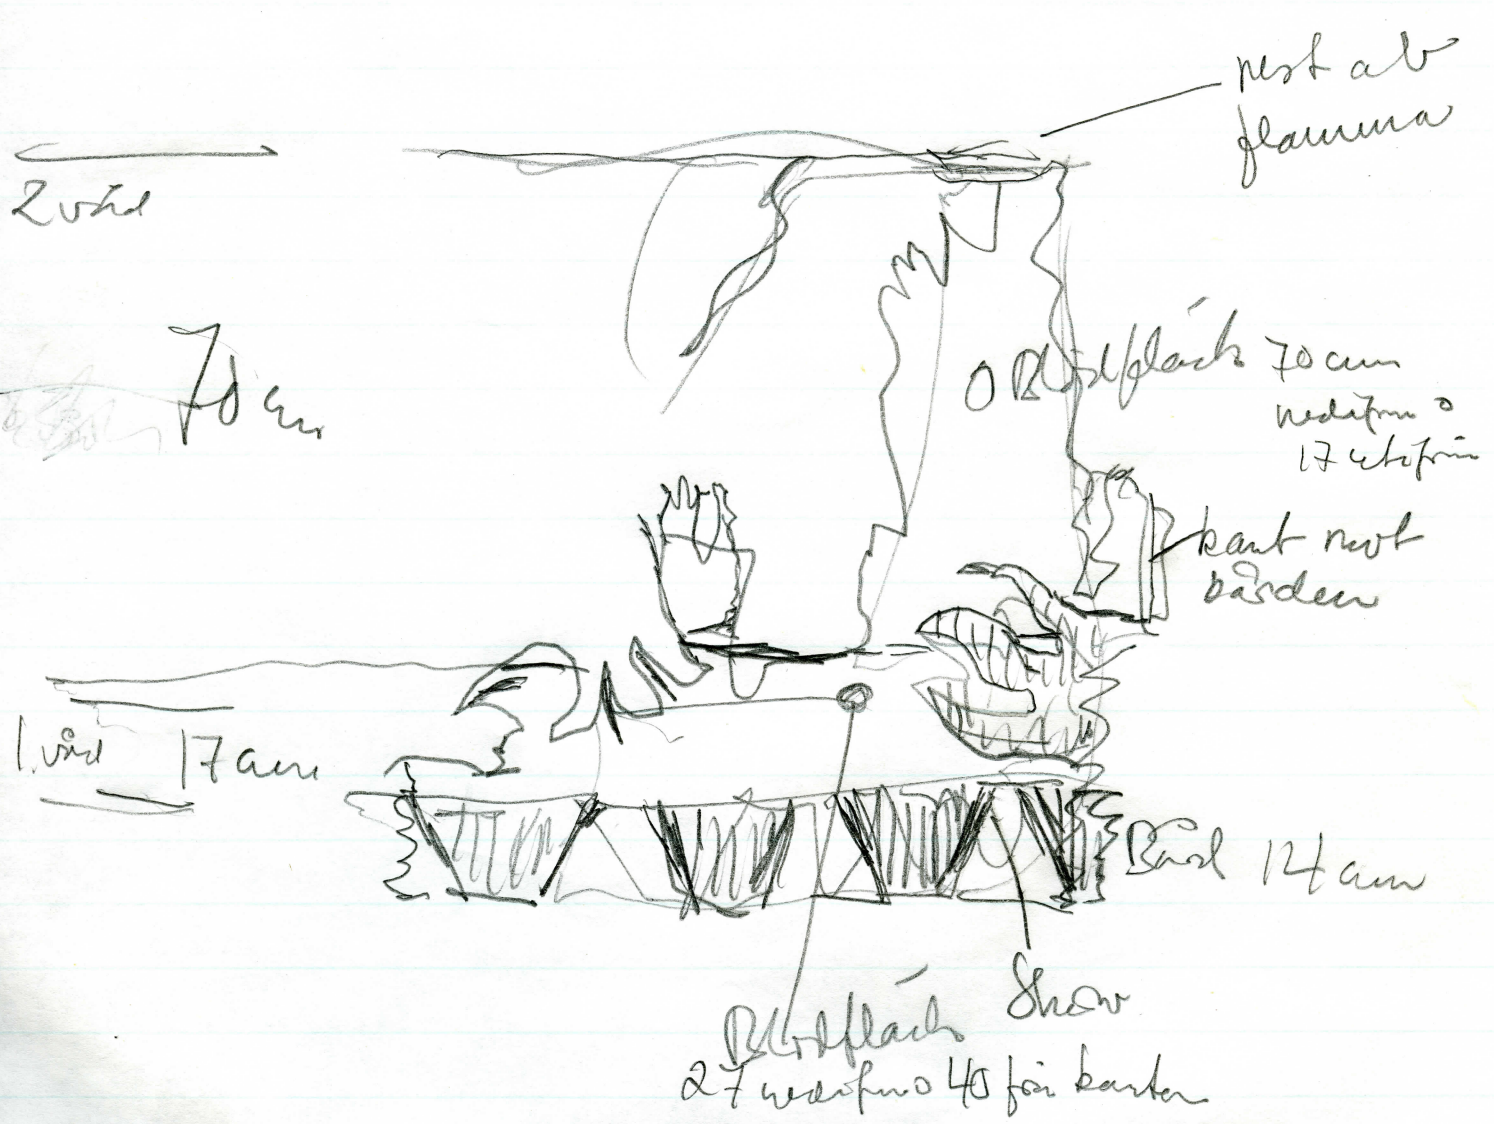 rest av
flamma
2 våd
70 cm
Blodfläck 70 cm
nedifrån o
17 utifrån
kant mot
bården
1. våd 17 cm
Bård 14 cm
Skarv
Blodfläck
27 nedifrån o 40 från kanten